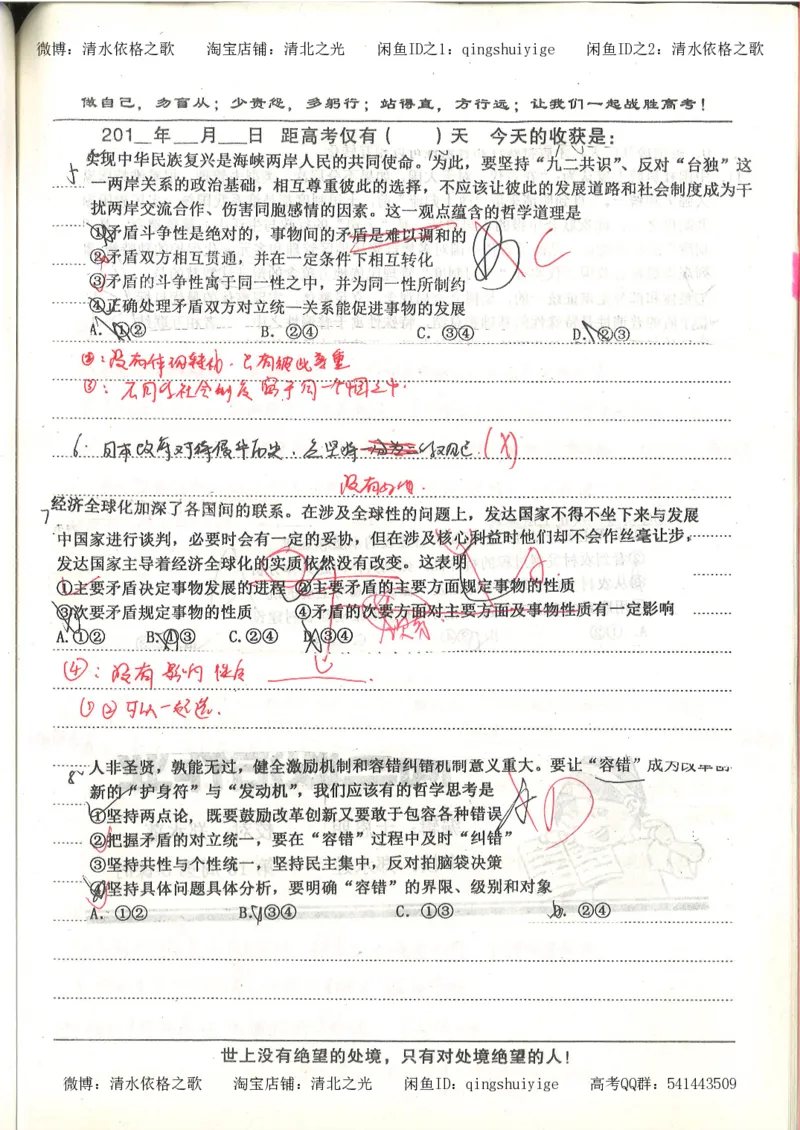 微博：清水依格之歌 淘宝店铺：清北之光 闲鱼ID之1：qingshuiyige 闲鱼ID之2：清水依格之歌
做自己，勿盲从；少责怨，多躬行；站得直，方行远；让我们一起战胜高考！
201__年___月___日 距高考仅有（ ）天 今天的收获是：
5 实现中华民族复兴是海峡两岸人民的共同使命。为此，要坚持“九二共识”、反对“台独”这
一两岸关系的政治基础，相互尊重彼此的选择，不应该让彼此的发展道路和社会制度成为干
扰两岸交流合作、伤害同胞感情的因素。这一观点蕴含的哲学道理是
①矛盾斗争性是绝对的，事物间的矛盾是难以调和的
C
②矛盾双方相互贯通，并在一定条件下相互转化
③矛盾的斗争性寓于同一性之中，并为同一性所制约
④正确处理矛盾双方对立统一关系能促进事物的发展
A. ①② B. ②④ C. ③④ D. ②③
②：没有体现转化．只有彼此尊重
③：不同的社会制度寓于同一个中国之中．
6. 日本政府对待侵华历史．(X)
没有
7 经济全球化加深了各国间的联系。在涉及全球性的问题上，发达国家不得不坐下来与发展
中国家进行谈判，必要时会有一定的妥协，但在涉及核心利益时他们却不会作丝毫让步，
发达国家主导着经济全球化的实质依然没有改变。这表明
A
①主要矛盾决定事物发展的进程 ②主要矛盾的主要方面规定事物的性质
③次要矛盾规定事物的性质 ④矛盾的次要方面对主要方面及事物性质有一定影响
A. ①② B. ①③ C. ②④ D. ③④
④：没有影响性质
①②可以一起选．
8 人非圣贤，孰能无过，健全激励机制和容错纠错机制意义重大。要让“容错”成为改革创
新的“护身符”与“发动机”，我们应该有的哲学思考是
①坚持两点论，既要鼓励改革创新又要敢于包容各种错误
D
②把握矛盾的对立统一，要在“容错”过程中及时“纠错”
③坚持共性与个性统一，坚持民主集中，反对拍脑袋决策
④坚持具体问题具体分析，要明确“容错”的界限、级别和对象
A. ①② B. ③④ C. ①③ D. ②④
世上没有绝望的处境，只有对处境绝望的人！
微博：清水依格之歌 淘宝店铺：清北之光 闲鱼ID：qingshuiyige 高考QQ群：541443509